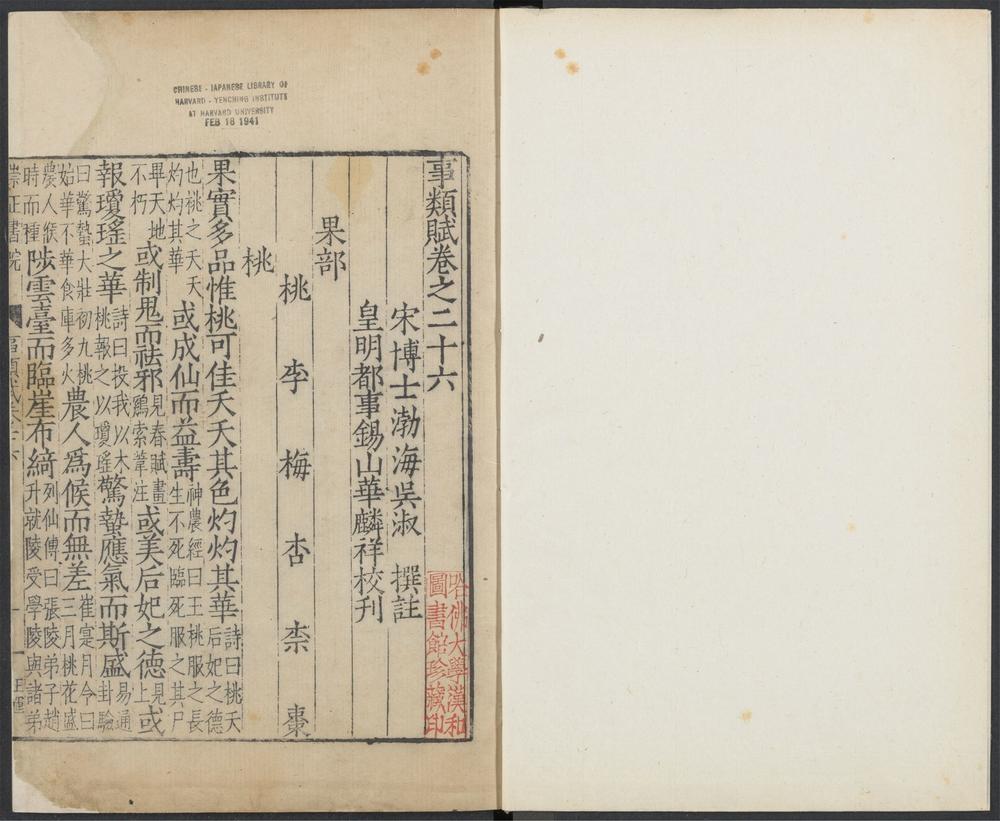 CHINESE - JAPANESE LIBRARY OF
HARVARD - YENCHING INSTITUTE
AT HARVARD UNIVERSITY
FEB 18 1941
事類賦卷之二十六
哈佛大學漢和
圖書館珍藏印
宋博士渤海吳淑 撰註
皇明都事錫山華麟祥校刊
果部
桃 李 梅 杏 柰 棗
桃
果實多品惟桃可佳夭夭其色灼灼其華詩曰桃夭后妃之德
也桃之夭夭灼灼其華或成仙而益壽神農經曰王桃服之長生不死臨死服之其尸
畢天地不朽或制鬼而祛邪見春賦畫鷄索葦注或美后妃之德見上或
報瓊瑤之華詩曰投我以木桃報之以瓊瑤驚蟄應氣而斯盛易通卦驗
曰驚蟄大壯初九桃始華不華食庫多火農人爲候而無差崔寔月令曰三月桃花盛
農人候時而種陟雲臺而臨崖布綺列仙傳曰張陵弟子趙升就陵受學陵與諸弟
崇正書院 事類賦卷二十六 一